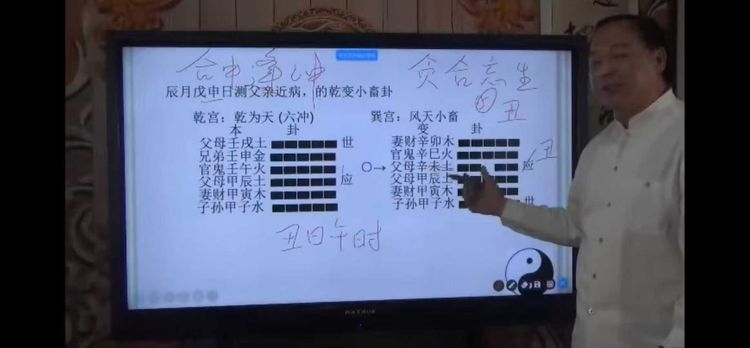 合中逢冲 贪合忘生
丑
辰月戊申日测父亲近病，的乾变小畜卦
乾宫：乾为天 (六冲) 巽宫：风天小畜
本 卦 变 卦
父母壬戌土 世 妻财辛卯木
兄弟壬申金 官鬼辛巳火
官鬼壬午火 O→ 父母辛未土 应 丑
父母甲辰土 应 父母甲辰土
妻财甲寅木 妻财甲寅木
子孙甲子水 子孙甲子水 世
丑日午时